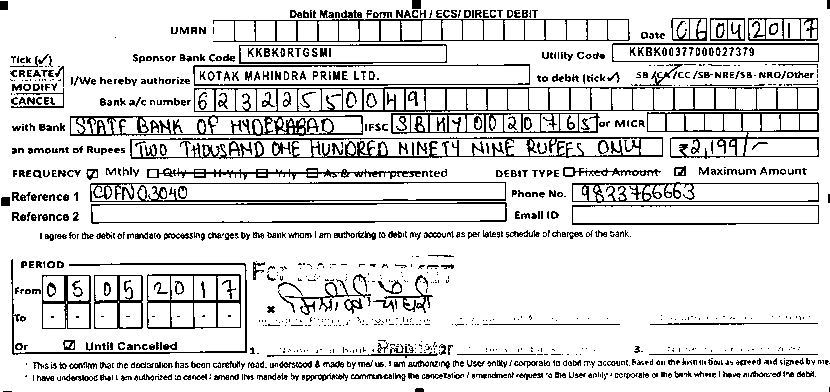 Debit Mandate Form NACH / ECS/ DIRECT DEBIT
UMRN Date 06042017
Tick (✓) Sponsor Bank Code KKBK0RTGSMI Utility Code KKBK00377000027379
CREATE✓ I/We hereby authorize KOTAK MAHINDRA PRIME LTD. to debit (tick✓) SB/CA/CC/SB-NRE/SB-NRO/Other
MODIFY
CANCEL Bank a/c number 62322550049
with Bank STATE BANK OF HYDERABAD IFSC SBHY0020765 or MICR
an amount of Rupees TWO THOUSAND ONE HUNDRED NINETY NINE RUPEES ONLY ₹2,199/-
FREQUENCY ☑ Mthly ☐ Qtly ☐ H-Yrly ☐ Yrly ☐ As & when presented DEBIT TYPE ☐ Fixed Amount ☑ Maximum Amount
Reference 1 CDFN03040 Phone No. 9823766663
Reference 2 Email ID
I agree for the debit of mandate processing charges by the bank whom I am authorizing to debit my account as per latest schedule of charges of the bank.
PERIOD For
From 05052017
To - - - - - - - -
Or ☑ Until Cancelled 1. 2. 3.
* This is to confirm that the declaration has been carefully read, understood & made by me/us. I am authorizing the User entity / corporate to debit my account, Based on the instruction as agreed and signed by me.
* I have understood that I am authorized to cancel / amend this mandate by appropriately communicating the cancellation / amendment request to the User entity / corporate or the bank where I have authorized the debit.